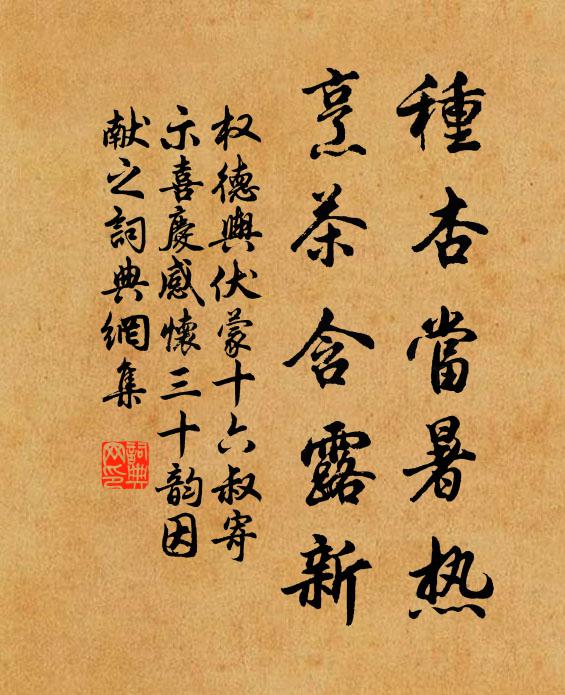 種杏當暑热
烹茶含露新
权德輿伏蒙十六叔寄
示喜慶感懷三十韵因
献之詞典網集
詞典
网印